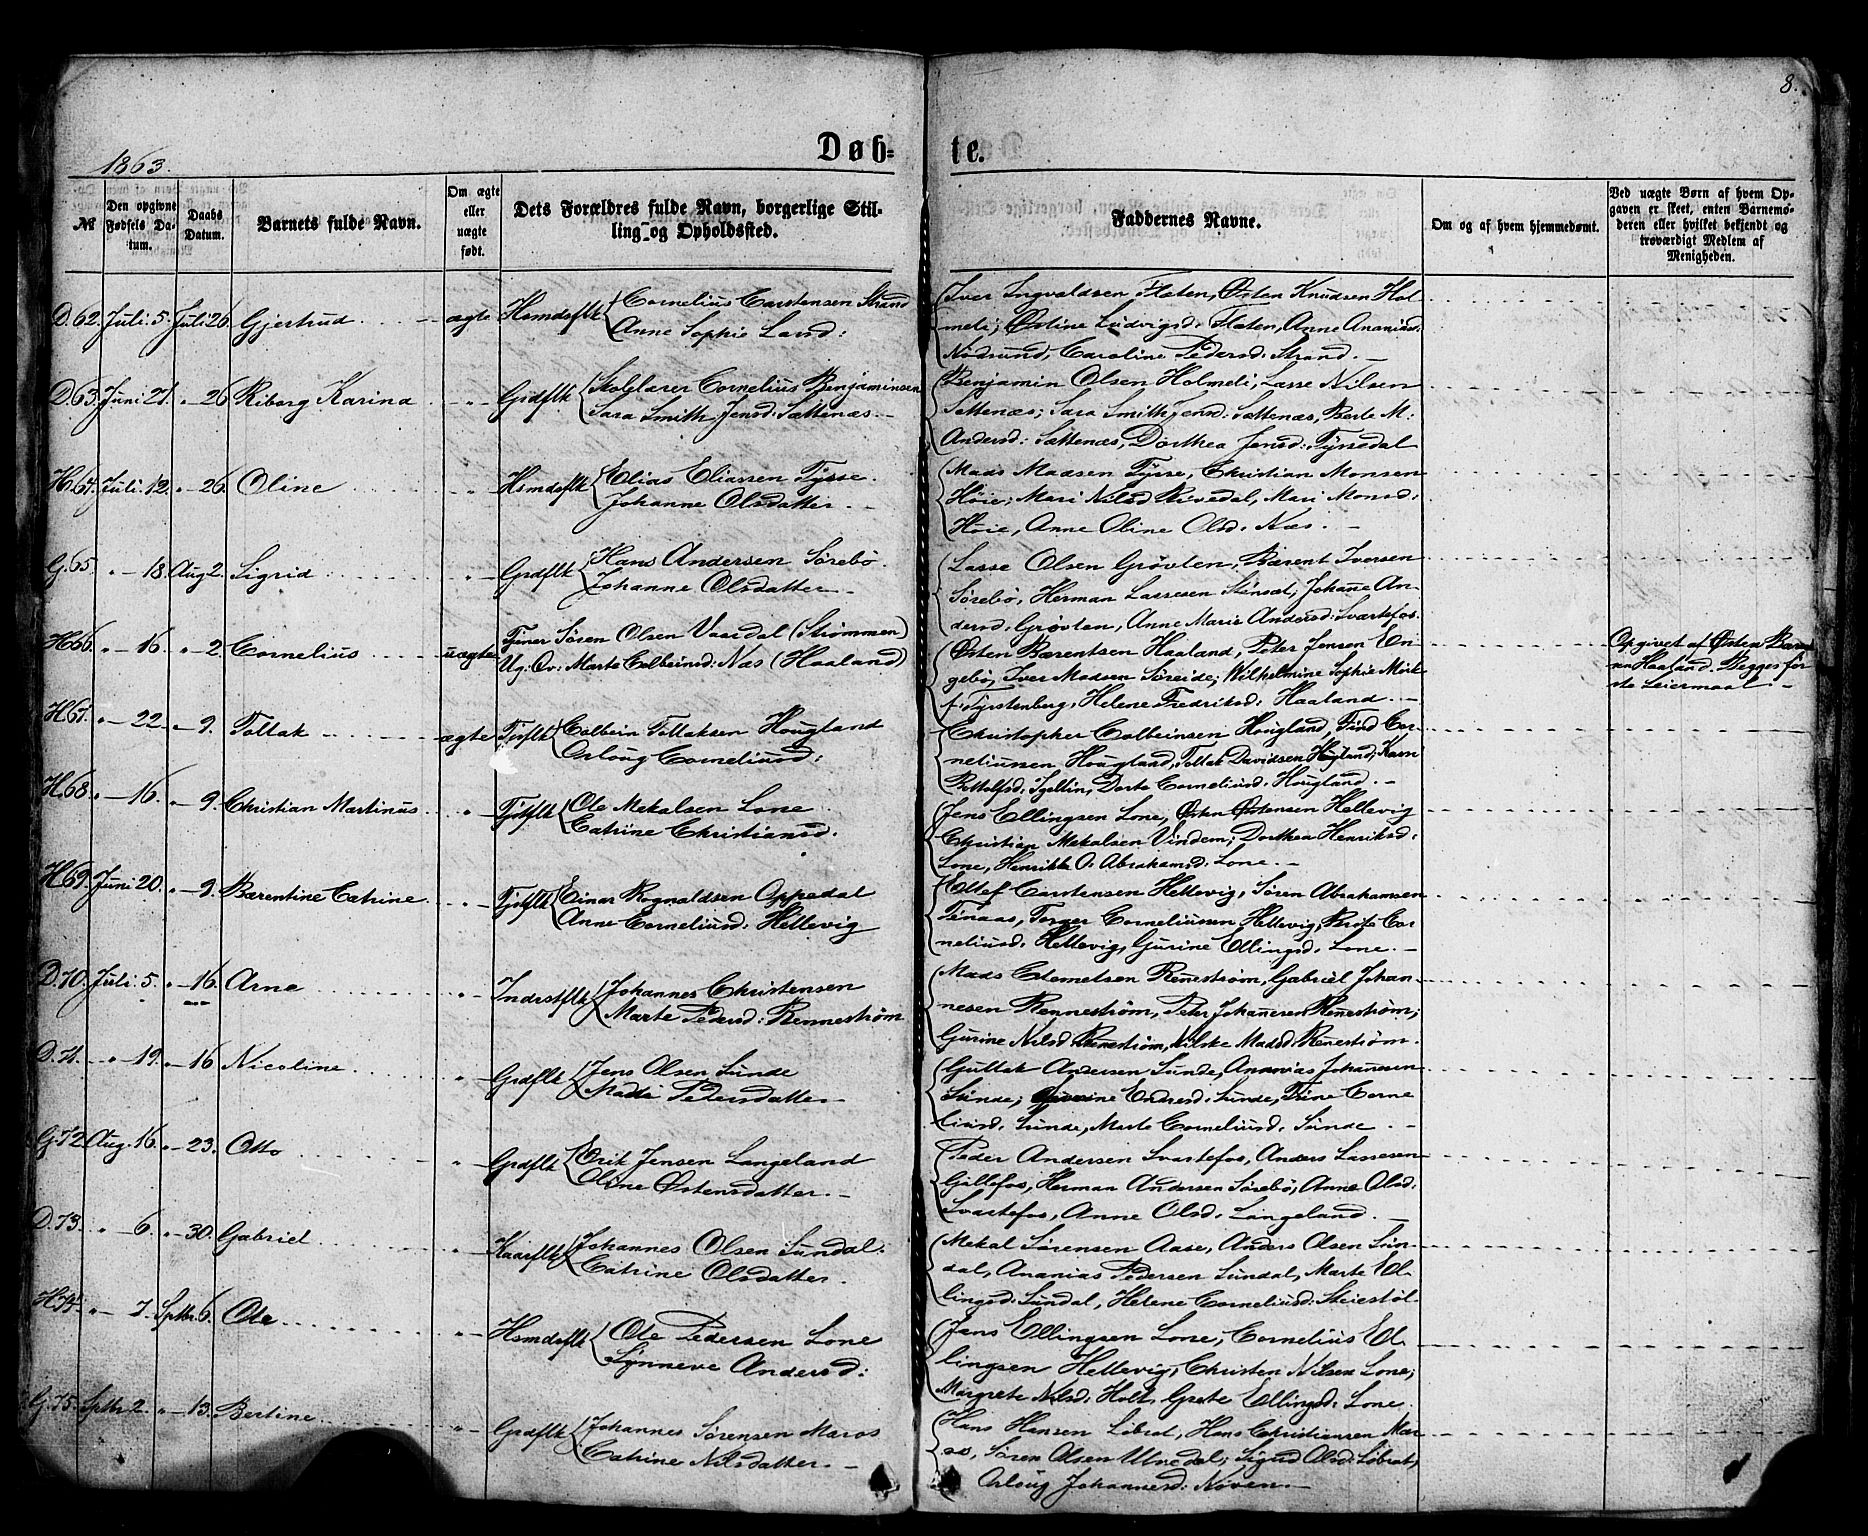 8.
Døb=
te.
1863.
№
Den opgivne Fødsels Da-
tum.
Daabs Datum.
Barnets fulde Navn.
Om ægte eller uægte født.
Dets Forældres fulde Navn, borgerlige Stil-
ling og Opholdssted.
Faddernes Navne.
Om og af hvem hjemmedømt.
Ved uægte Børn af hvem Op-
gaven er skeet, enten Barnemo-
deren eller hvilket bekjendt og
troværdigt Medlem af
Menigheden.
D. 62. Juli 5. Juli 26. Gjertrud ægte Hsmdsflk Cornelius Carstensen Strand
Anne Sophie Larsd:
Iver Ingvaldsen Flaten, Østen Knudsen Hol-
meli; Østine Ludvigsd: Flaten, Anne Ananiasd:
Nødsund, Caroline Pedersd: Strand. –
D. 63. Juni 27. " – 26. Riborg Karina " Grdflk Skolelærer Cornelius Benjaminsen
Sara Smith Jensd: Sættenæs. –
Benjamin Olsen Holmeli, Lasse Nilsen
Sættenæs; Sara Smith Jensd: Sættenæs, Berte M:
Andersd: Sættenæs, Dorthea Jensd: Tyssedal
H. 64. Juli 12. " – 26. Oline " Hsmdsflk Elias Eliassen Tysse.
Johanne Olsdatter. –
Mads Madsen Tysse, Christian Monsen
Høie; Mari Nilsd Rivedal, Mari Monsd:
Høie, Anne Oline Olsd: Næs. –
G. 65. " – 18. Aug 2. Sigrid " Grdflk Hans Andersen Sørebø.
Johanne Olsdatter. –
Lasse Olsen Grøvlen, Bærent Iversen
Sørebø, Herman Lassesen Stensæt; Johane An-
dersd: Grøvlen, Anne Marie Andersd: Svartefos.
H. 66. " – 16. " – 2. Cornelius uægte Tjener Søren Olsen Vaardal (Strømmen)
Ug: Qv: Marte Colbeinsd: Næs (Haaland)
Østen Bærentsen Haaland, Peter Jensen En-
gebø, Iver Madsen Søreide; Wilhelmine Sophie Mørk
f: Fyrstenberg, Helene Fredriksd: Haaland. –
Opgivet af Østen
Haaland. Begges før
ste Leiermaal –
H. 67. " – 22. " – 9. Tollak ægte Tjdflk Colbein Tollaksen Hougland
Asloug Corneliusd:
Christopher Colbeinsen Hougland, Find Cor-
neliussen Hougland, Tollak Davidsen Hougland; Karn
Dorte Corneliusd: Hougland. –
H. 68. " – 16. " – 9. Christian Martinus " Tjdflk Ole Mekalsen Lone
Catrine Christiansd:
Jens Ellingsen Lone, Østen Østensen Hellevig
Christian Mekalsen Vindem; Dorthea Henriksd:
Lone, Henrikke O: Abrahamsd: Lone. –
H. 69. Juni 20. " – 9. Barentine Catrine " Tjdflk Einar Rognaldsen Oppedal
Anne Corneliusd: Hellevig
Ellef Carstensen Hellevig, Søren Abrahamsen
Tenaas, Torger Corneliussen Hellevig; Berte Cor-
neliusd: Hellevig, Gurine Ellingsd: Lone. –
D. 70. Juli 5. " – 16. Arne " Indrstflk Johannes Christensen
Marte Pedersd: Rennestrøm
Mads Clemetsen Renestrøm, Gabriel Johan-
nesen Rennestrøm, Peter Johanesen Renestrøm;
Gurine Nilsd Renestrøm, Nilske Madsd Renestrøm.
D. 71. " – 19. " – 16 Nicoline " Grdflk Jens Olsen Sunde
Madti Pedersdatter. –
Guttak Andersen Sunde, Ananias Johanesen
Sunde; Endresd: Sunde, Trine Corne
liusd: Sunde, Marte Corneliusd: Sunde. –
G. 72. Aug. 16. " – 23. Otto " Grdflk Erik Jensen Langeland
Oline Østensdatter. –
Peder Andersen Svartefos, Anders Lassesen
Gillefos, Herman Andersen Sørebø; Anne Olsd:
Svartefos, Anne Olsd: Langeland. –
D. 73. " – 6. " – 30. Gabriel " Kaarflk Johannes Olsen Sundal.
Catrine Olsdatter.
Mekal Sørensen Aase, Anders Olsen Sun-
dal, Ananias Pedersen Sundal, Marte El-
lingsd: Sundal, Helene Corneliusd: Steiestøl.
H. 74. " – 7. Sptbr. 6. Ole " Hsmdsflk Ole Pedersen Lone
Synneve Andersd:
Jens Ellingsen Lone, Cornelius El-
lingsen Hellevig, Christen Nilsen Lone;
Margrete Nilsd: Holt, Grete Ellingsd: Lone.
G. 75. Sptbr 2. " – 13. Bertine " Grdflk Johannes Sørensen Maros
Catrine Nilsdatter. –
Hans Hansen Librot, Hans Christiansen Mar-
os, Søren Olsen Ulvedal; Sigrid Olsd: Librot,
Asloug Johannesd: Noven. –